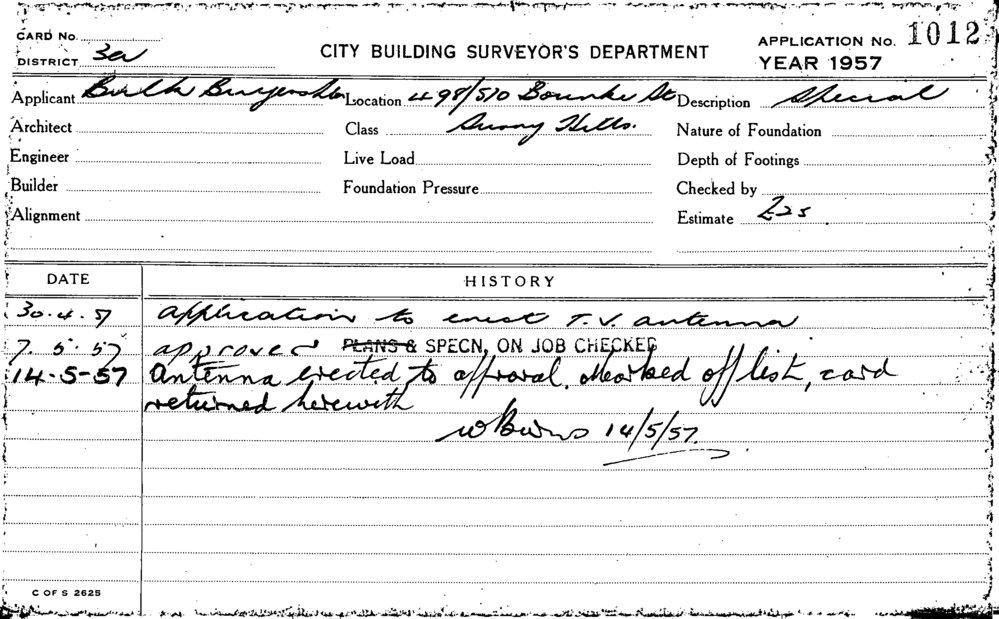 CARD No.
DISTRICT 3a
CITY BUILDING SURVEYOR'S DEPARTMENT
APPLICATION No. 1012
YEAR 1957
Applicant Bulk Location 498/510 Bourke St Description Special
Architect Class Surry Hills. Nature of Foundation
Engineer Live Load Depth of Footings
Builder Foundation Pressure Checked by
Alignment Estimate £25
DATE HISTORY
30.4.57 application to erect T.V. antenna
7.5.57 approved PLANS & SPECN, ON JOB CHECKED
14-5-57 Antenna erected to approval. Marked off list, card
returned herewith
WBurns 14/5/57.
C OF S 2625